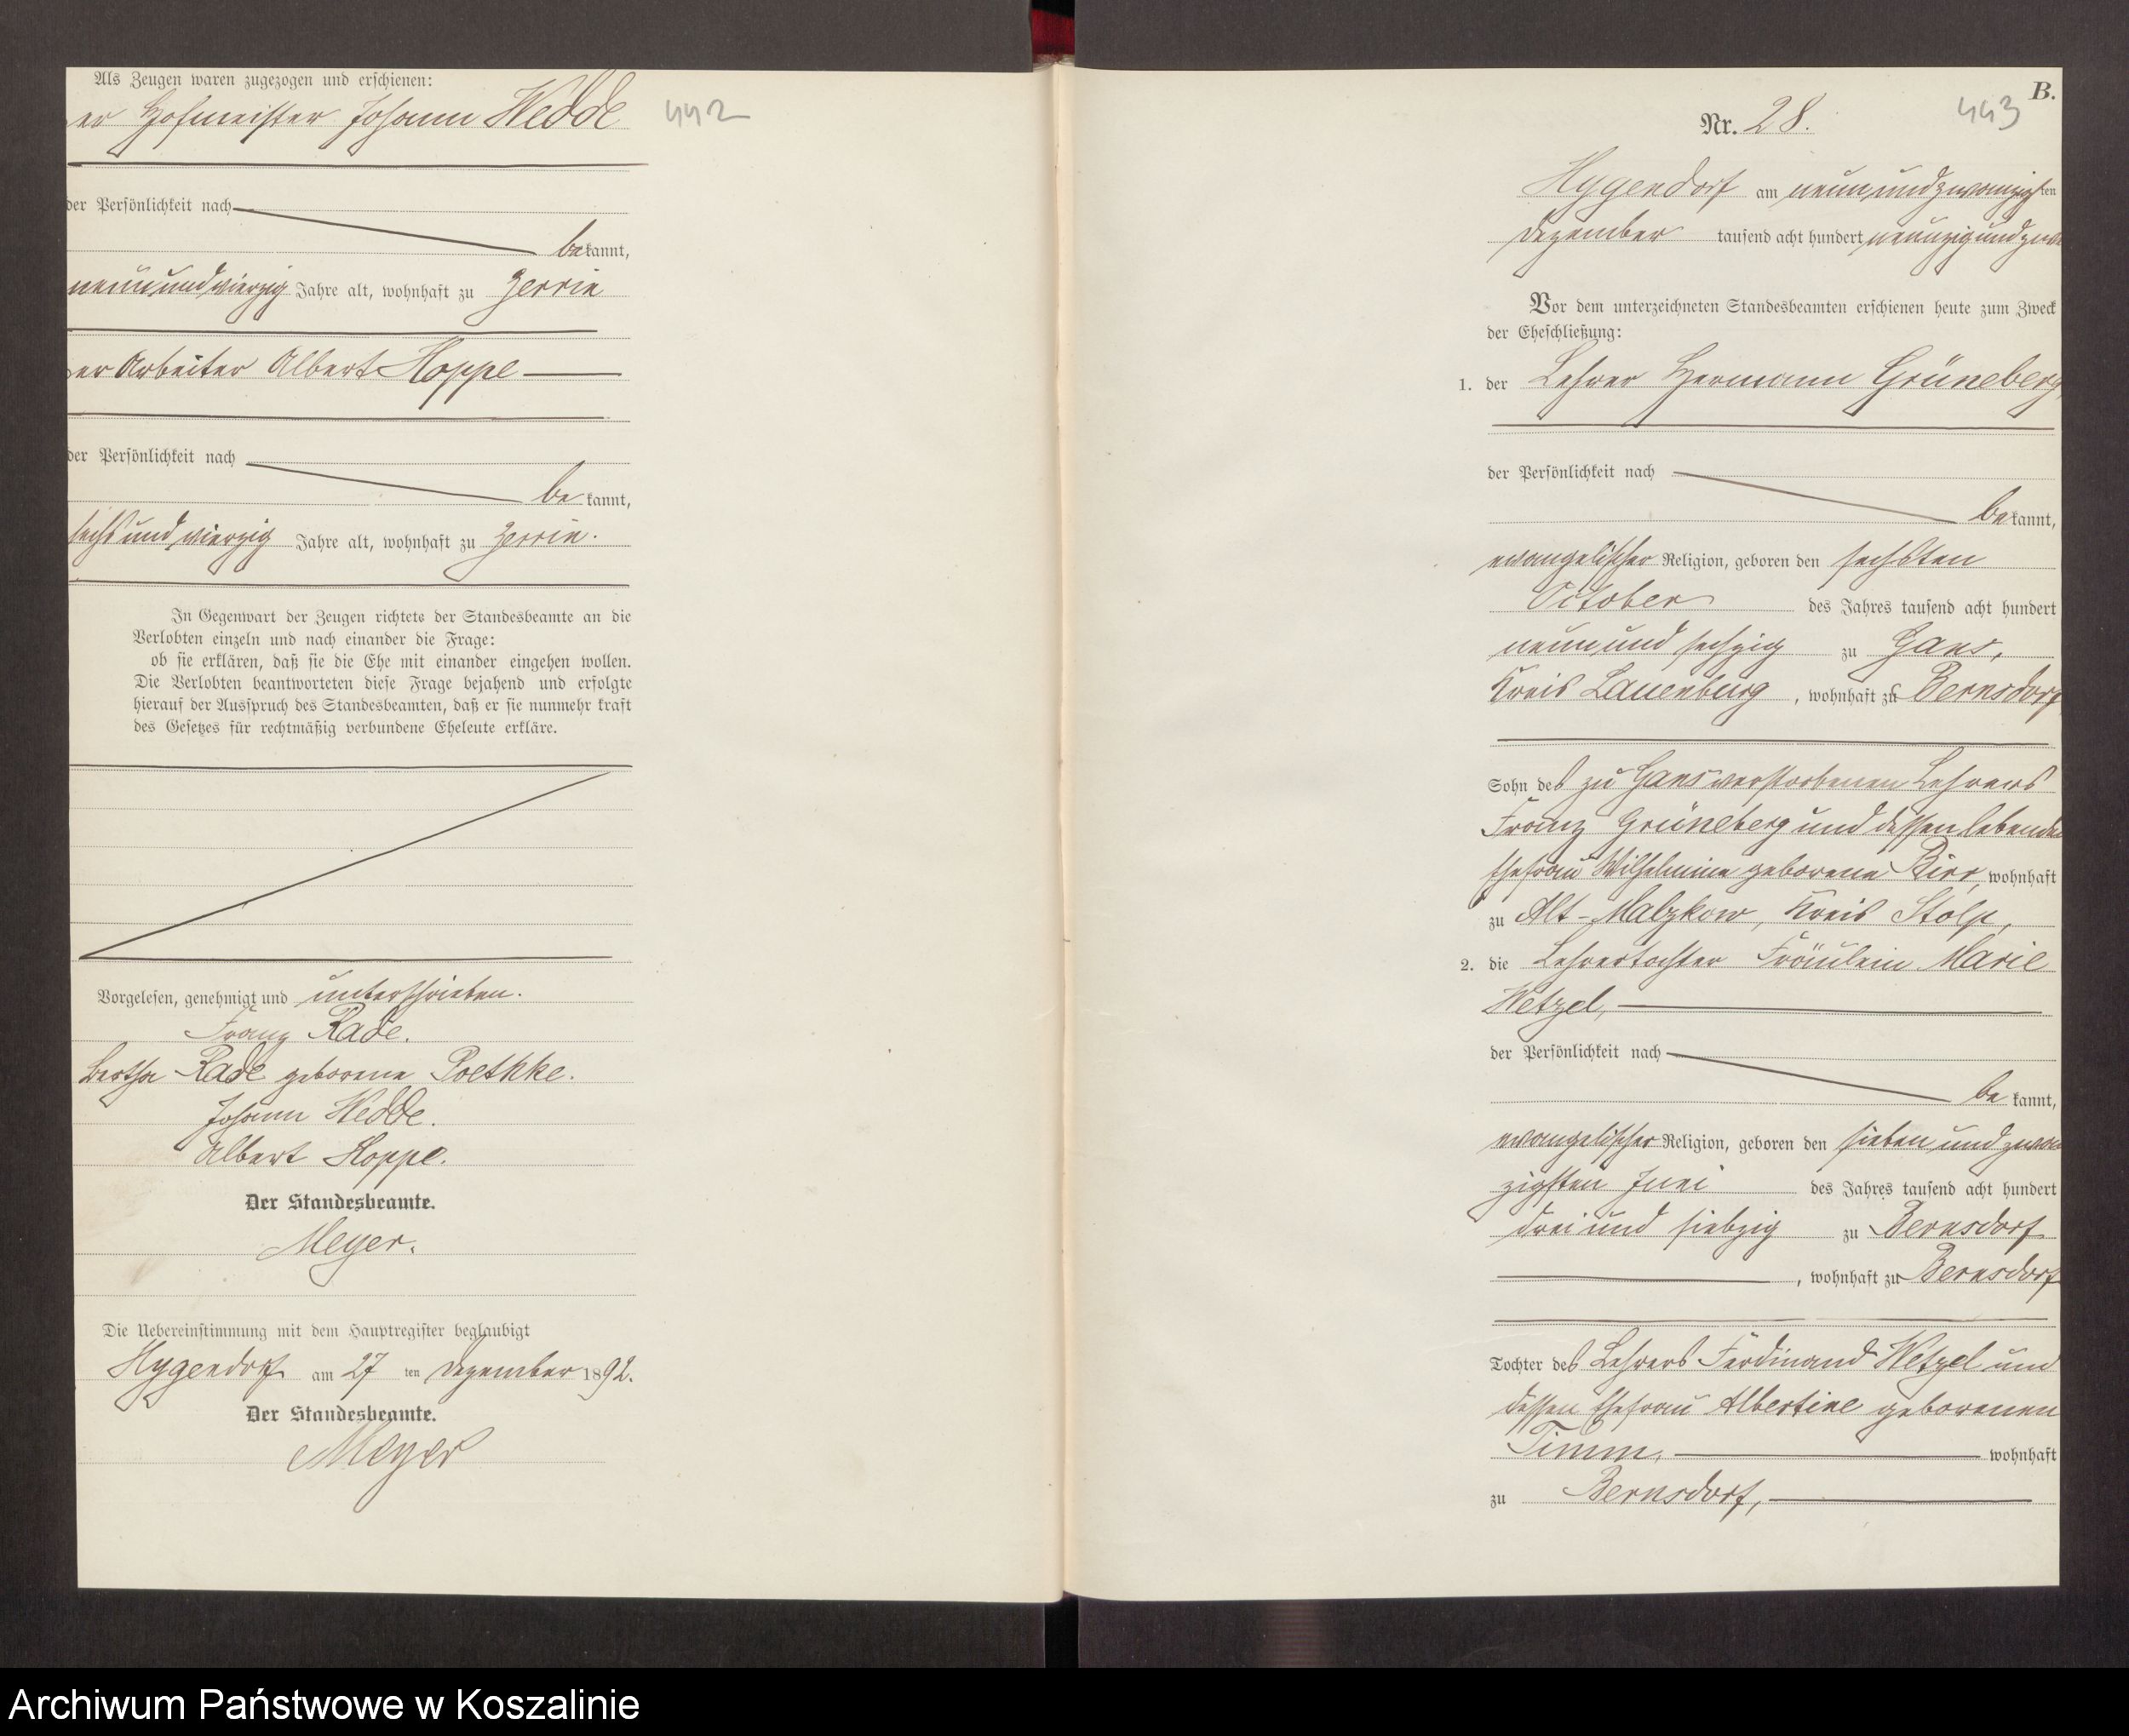 Als Zeugen waren zugezogen und erschienen:
er Hofmeister Johann Wedde
442
der Persönlichkeit nach
bekannt,
neunundvierzig Jahre alt, wohnhaft zu Zerrin
er Arbeiter Albert Hoppe
der Persönlichkeit nach
be kannt,
sechsundvierzig Jahre alt, wohnhaft zu Zerrin.
In Gegenwart der Zeugen richtete der Standesbeamte an die
Verlobten einzeln und nach einander die Frage:
ob sie erklären, daß sie die Ehe mit einander eingehen wollen.
Die Verlobten beantworteten diese Frage bejahend und erfolgte
hierauf der Ausspruch des Standesbeamten, daß er sie nunmehr kraft
des Gesetzes für rechtmäßig verbundene Eheleute erkläre.
Vorgelesen, genehmigt und unterschrieben.
Franz Rade.
Bertha Rade geborene Poethke.
Johann Wedde.
Albert Hoppe.
Der Standesbeamte.
Meyer.
Die Uebereinstimmung mit dem Hauptregister beglaubigt
Hygendorf am 27 ten Dezember 1892.
Der Standesbeamte.
Meyer
B.
443
Nr. 28.
Hygendorf am neunundzwanzigsten
Dezember tausend acht hundert neunzigundzwei
Vor dem unterzeichneten Standesbeamten erschienen heute zum Zweck
der Eheschließung:
1. der Lehrer Hermann Grüneberg,
der Persönlichkeit nach
bekannt,
evangelischer Religion, geboren den sechsten
October des Jahres tausend acht hundert
neunundsechzig zu Gans,
Kreis Lauenburg, wohnhaft zu Bernsdorf
Sohn des zu Gans verstorbenen Lehrers
Franz Grüneberg und dessen lebenden
Ehefrau Wilhelmine geborene Birr, wohnhaft
zu Alt-Malzkow, Kreis Stolp,
2. die Lehrertochter Fräulein Marie
Wetzel,
der Persönlichkeit nach
be kannt,
evangelischer Religion, geboren den siebenundzwan
zigsten Juni des Jahres tausend acht hundert
dreiundsiebzig zu Bernsdorf
, wohnhaft zu Bernsdorf
Tochter des Lehrers Ferdinand Wetzel und
dessen Ehefrau Albertine geborenen
Timm, wohnhaft
zu Bernsdorf,
Archiwum Państwowe w Koszalinie